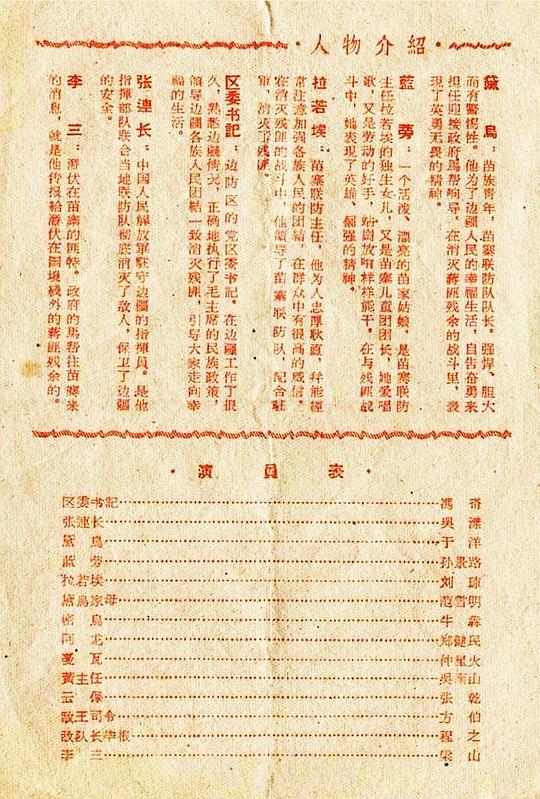 ·人物介紹·
黛 烏：苗族青年，苗寨联防队队长。强悍、胆大
而有警惕性。他为了边疆人民的幸福生活，自告奋勇来
担任迎接政府馬帮向导，在消灭蔣匪残余的战斗里，表
现了英勇无畏的精神。
藍 蒡：一个活泼、漂亮的苗家姑娘，是苗寨联防
主任拉若埃的独生女儿，又是苗寨儿童团团长，她爱唱
歌，又是劳动的好手，站崗放哨样样能干。在与残匪战
斗中，她表现了英雄、倔强的精神。
拉若埃：苗寨联防主任，他为人忠厚耿直，并能經
常注意加强各族人民的团結，在群众中有很高的威信。
在消灭残匪的战斗中，他領导了苗寨联防队，配合駐
軍，消灭了残匪。
区委书記：边防区的党区委书記。在边疆工作了很
久，熟悉边疆情况，正确地执行了毛主席的民族政策，
領导边疆各族人民团結一致消灭残匪，引导大家走向幸
福的生活。
张連长：中国人民解放軍駐守边疆的指揮員。是他
指揮部队联合当地联防队彻底消灭了敌人，保卫了边疆
的安全。
李 三：潛伏在苗寨的匪特。政府的馬帮往苗鄉来
的消息，就是他传报給潛伏在国境綫外的蔣匪残余的。
·演員表·
区委书記 馮奇
张連长 吳濼
黛烏 于洋
蓝蒡 孙景路
拉若埃 刘琼
黛烏家母 范雪明
密烏 牛犇
阿龙 郑健民
瓦 仲星火
黃主任 吳南山
云保 张乾
敌王司令 方伯
敌队长 程之
李三 梁山